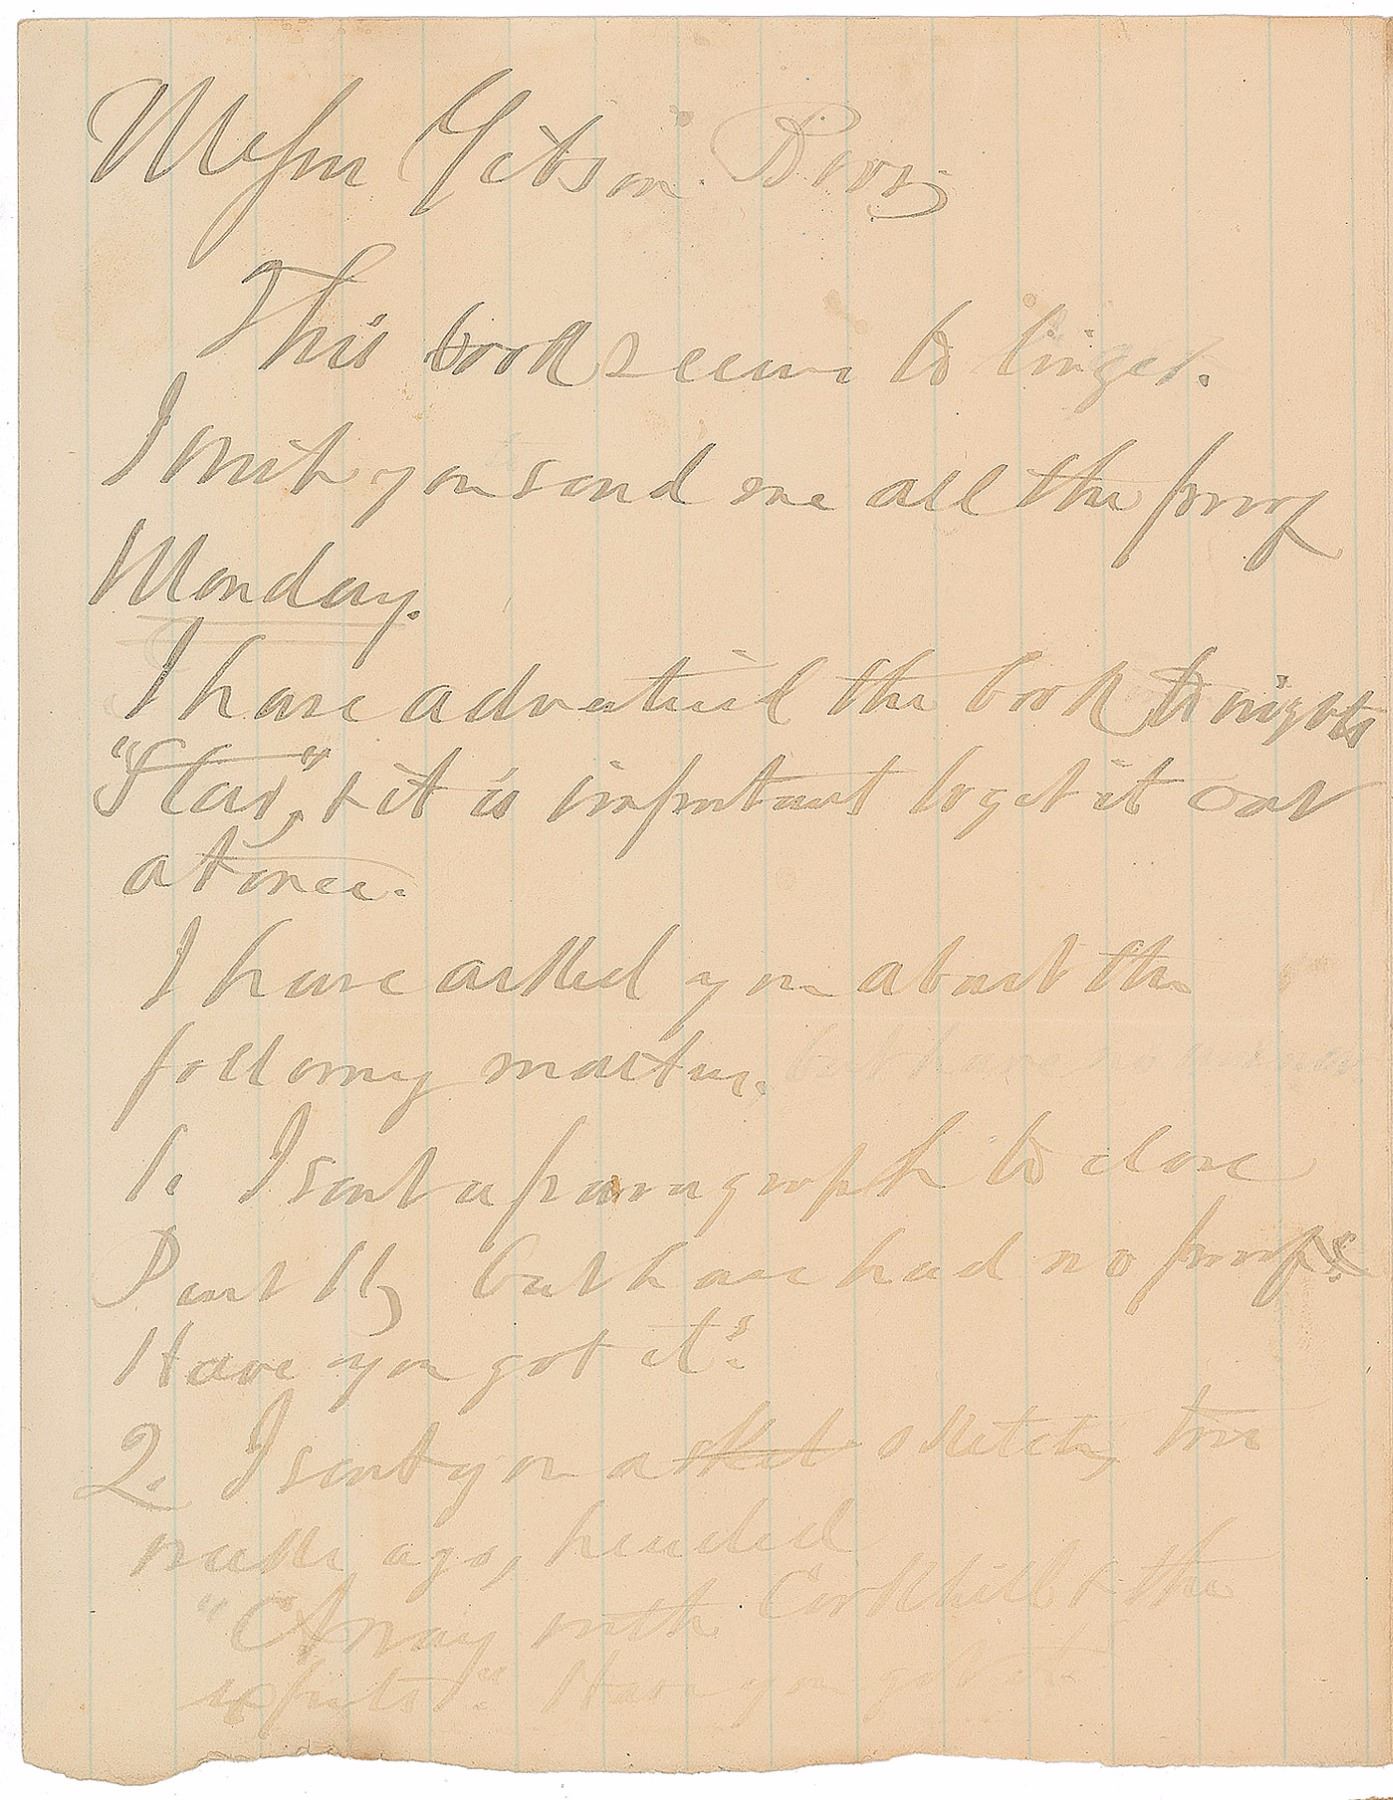 Messrs Gibson Bros.
This book seems to linger.
I wish you send me all the proof
Monday.
I have advertised the book to nights
"Star," & it is important to get it out
at once.
I have asked you about the
following matters, but have no
1. I sent a paragraph to close
Part II, but have had no proof.
Have you got it?
2. I sent you a sket sketch, two
weeks ago, headed
"Away with Corkhill & the
experts". Have you got it